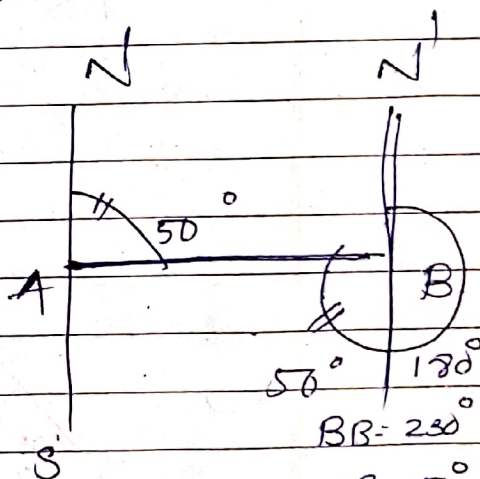 N N'
50°
A B
50° 180°
BB = 230°
S